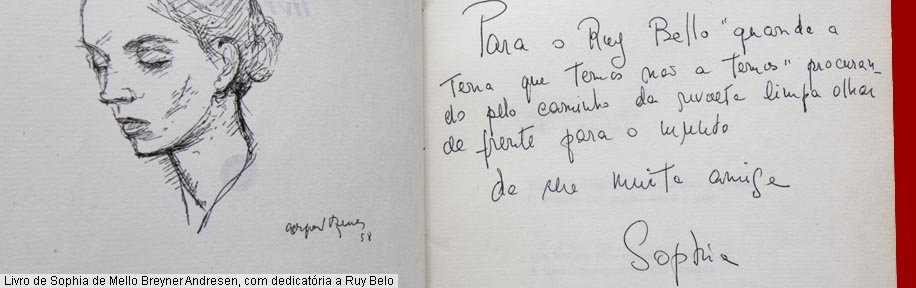 Para o Ruy Bello "quando a
Terra que temos nos a temos" procuran-
do pelo caminho da revolta limpa olhar
de frente para o mundo
da sua muito amiga
Sophia
58
Livro de Sophia de Mello Breyner Andresen, com dedicatória a Ruy Belo